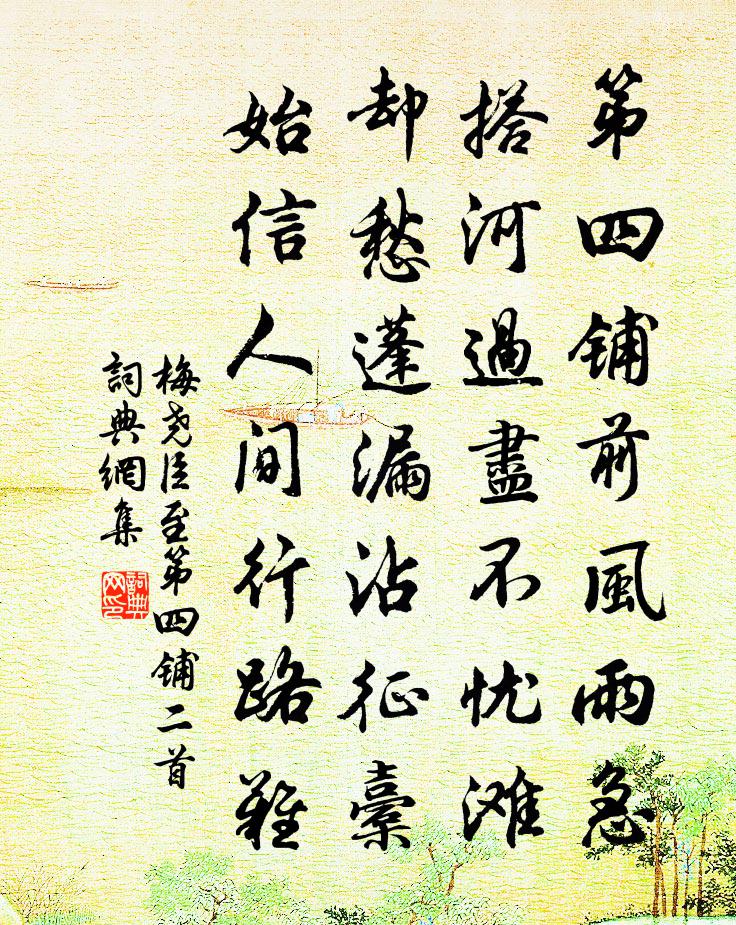 第四铺前風雨急
搭河過盡不忧滩
却愁蓬漏沾征橐
始信人间行路難
梅尧臣至第四铺二首
詞典網集
詞典网印